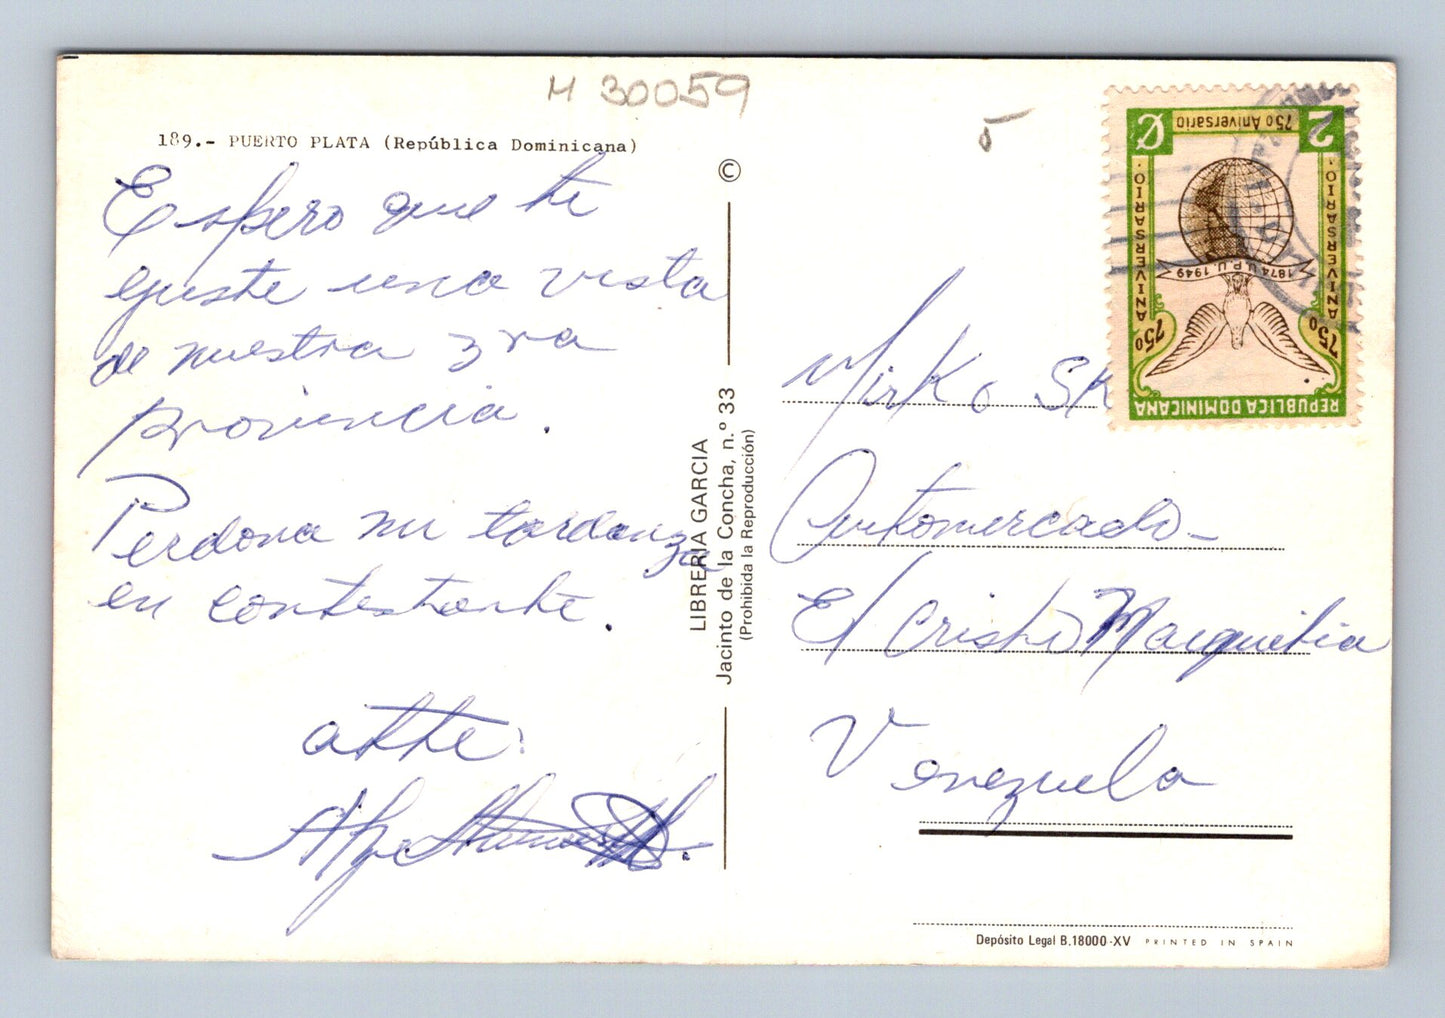 H 30059
189.- PUERTO PLATA (República Dominicana)
Espero que te
guste una vista
de nuestra
provincia.
Perdona mi tardanza
en contestarte.
atte:
©
LIBRERIA GARCIA
Jacinto de la Concha, n.º 33
(Prohibida la Reproducción)
5
REPUBLICA DOMINICANA
75º 75º
ANIVERSARIO. ANIVERSARIO.
1874 U.P.U. 1949
2 75º Aniversario ¢
Mirko SK
Automercado-
El Cristo Maiquetia
Venezuela
Depósito Legal B.18000-XV PRINTED IN SPAIN